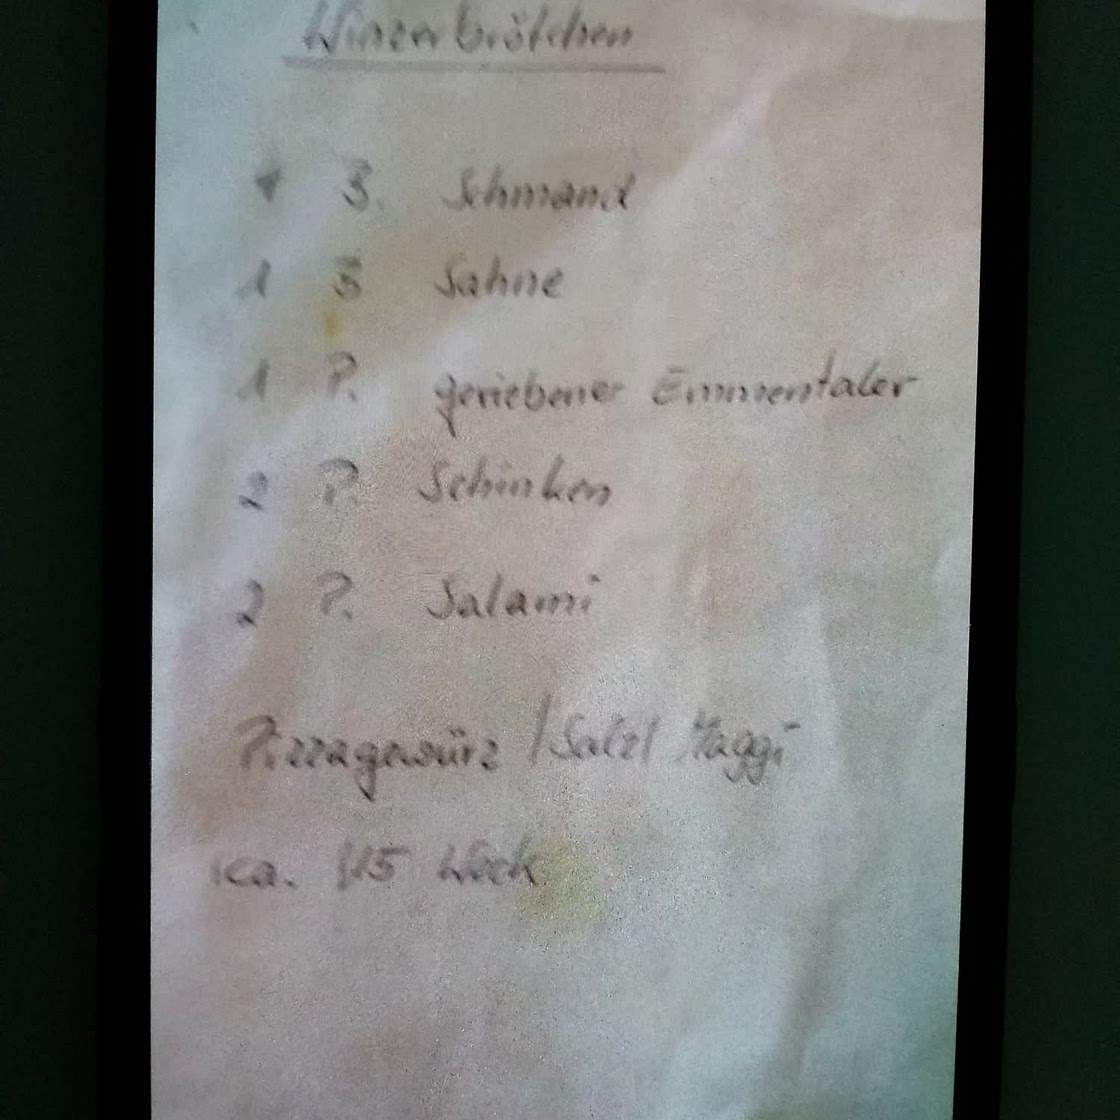 Winzerbrötchen
1 B. Schmand
1 B Sahne
1 P. geriebener Emmentaler
2 P. Schinken
2 P. Salami
Pizzagewürz / Salz / Maggi
ca. 15 Weck